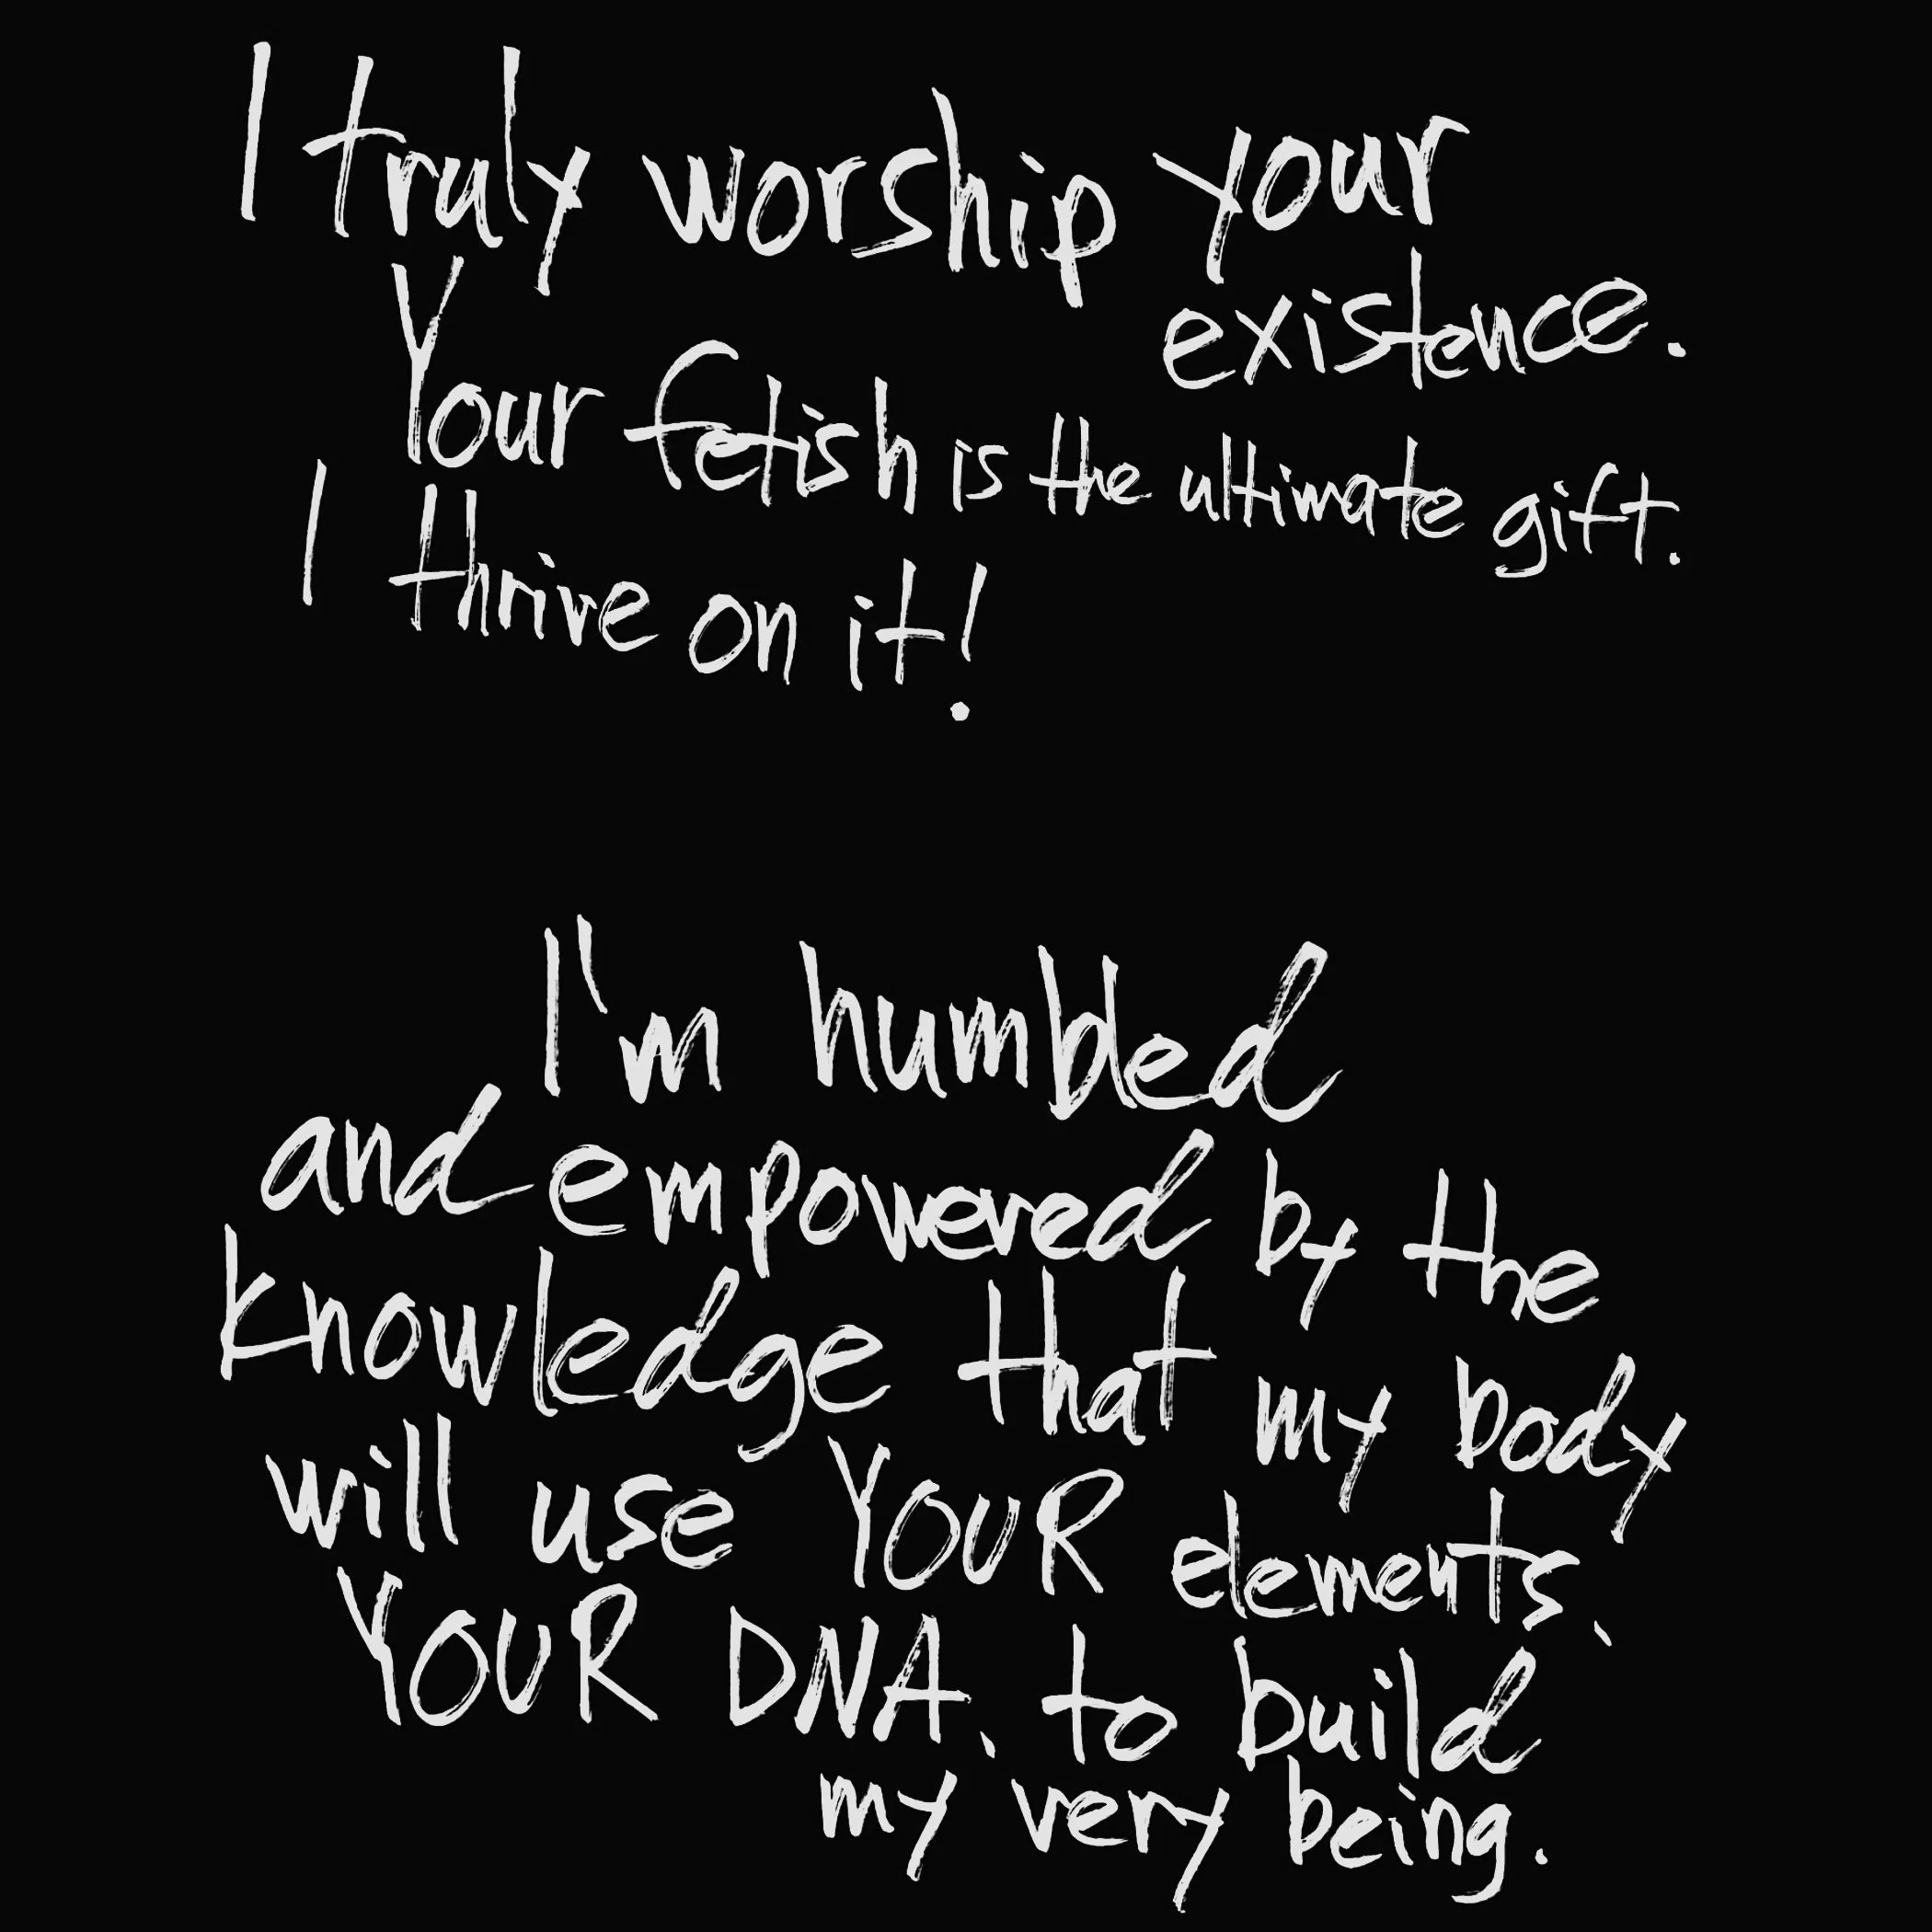 I truly worship your
existence.
Your fetish is the ultimate gift.
I thrive on it!
I'm humbled
and empowered by the
knowledge that my body
will use YOUR elements,
YOUR DNA, to build
my very being.